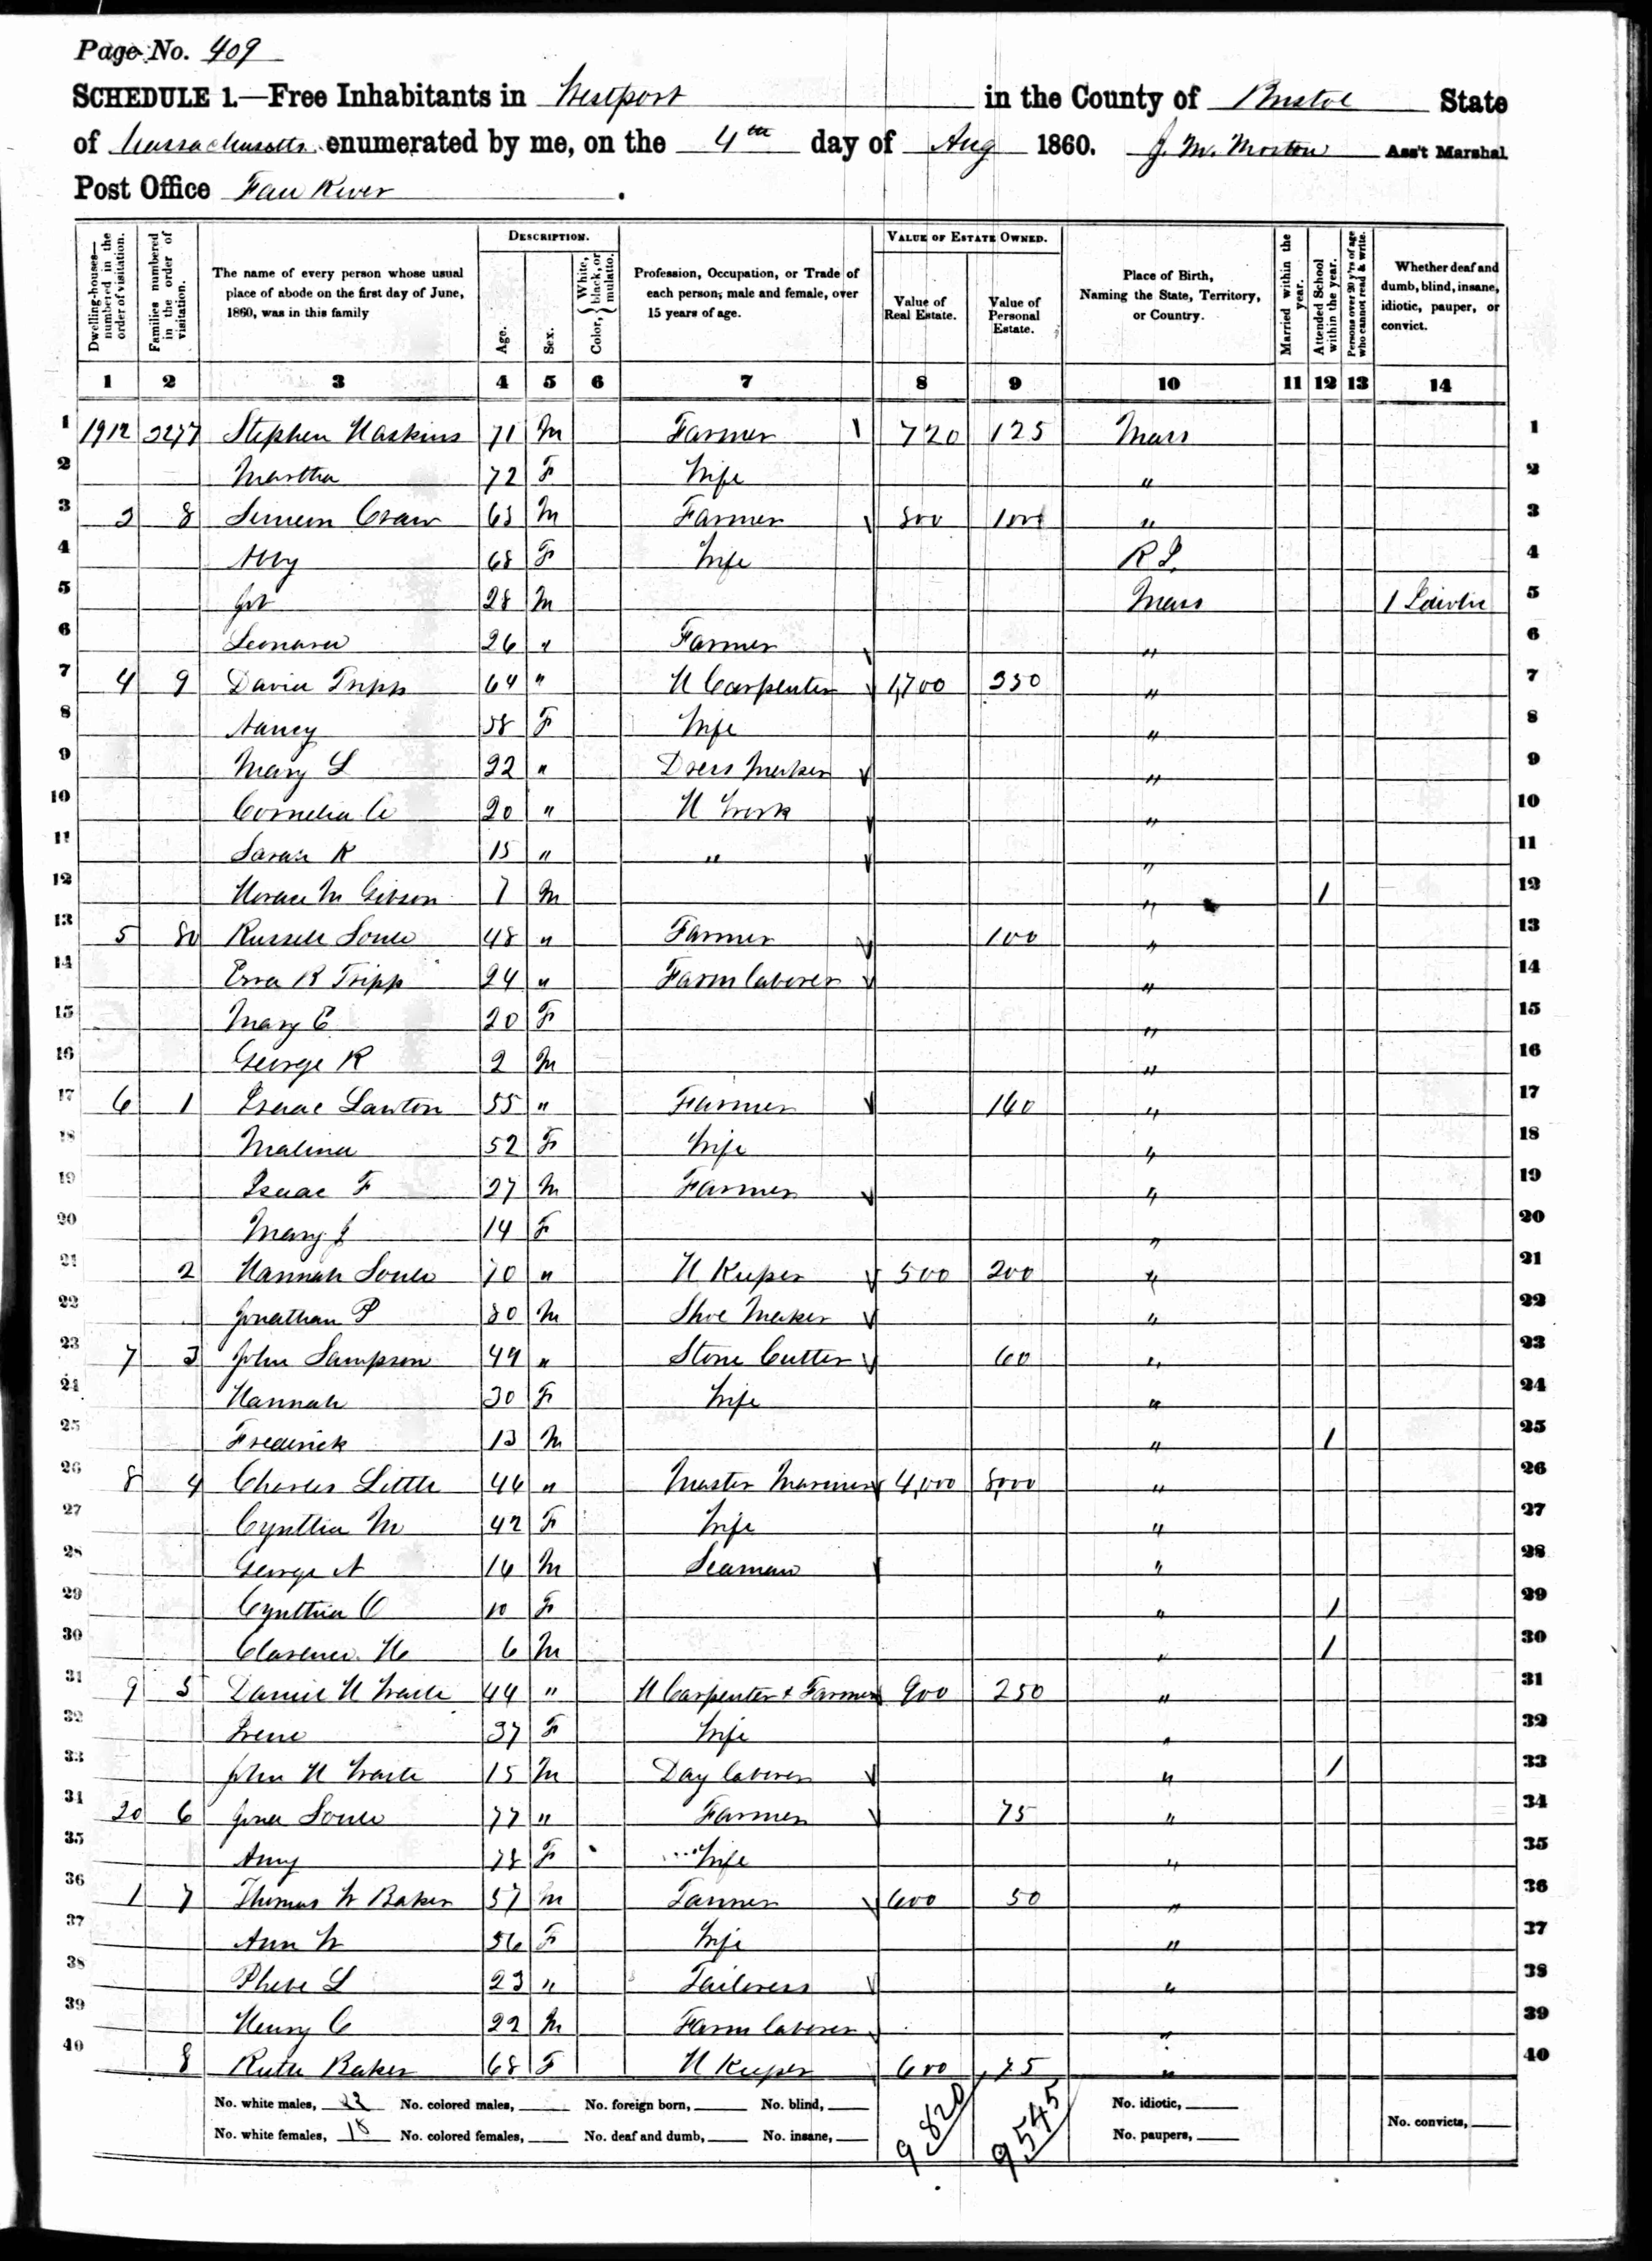 Page No. 409
SCHEDULE 1.—Free Inhabitants in Westport in the County of Bristol State
of Massachusetts enumerated by me, on the 4th day of Aug 1860. J. M. Morton Ass't Marshal
Post Office Fall River.
Dwelling-houses—numbered in the order of visitation. Families numbered in the order of visitation. The name of every person whose usual place of abode on the first day of June, 1860, was in this family DESCRIPTION. Age. Sex. Color, White, black, or mulatto. Profession, Occupation, or Trade of each person, male and female, over 15 years of age. VALUE OF ESTATE OWNED. Value of Real Estate. Value of Personal Estate. Place of Birth, Naming the State, Territory, or Country. Married within the year. Attended School within the year. Persons over 20 y'rs of age who cannot read & write. Whether deaf and dumb, blind, insane, idiotic, pauper, or convict.
1 2 3 4 5 6 7 8 9 10 11 12 13 14
1 1912 3277 Stephen Haskins 71 M Farmer 720 125 Mass 1
2 Martha 72 F Wife " 2
3 3 8 Simeon Craw 63 M Farmer 800 1000 " 3
4 Abby 68 F Wife R I. 4
5 Job 28 M Mass 1 5
6 Leonard 26 " Farmer " 6
7 4 9 David Tripp 64 " H Carpenter 1,700 350 " 7
8 Nancy 58 F Wife " 8
9 Mary L 22 " Dress Maker " 9
10 Cornelia A 20 " H Work " 10
11 Sarah R 15 " " " 11
12 Horace M Gibson 7 M " 1 12
13 5 80 Russell Soule 48 " Farmer 100 " 13
14 Ezra B Tripp 24 " Farm laborer " 14
15 Mary E 20 F " 15
16 George R 2 M " 16
17 6 1 Isaac Lawton 55 " Farmer 160 " 17
18 Malina 52 F Wife " 18
19 Isaac F 27 M Farmer " 19
20 Mary J 14 F " 20
21 2 Hannah Soule 70 " H Keeper 500 200 " 21
22 Jonathan P 30 M Shoe Maker " 22
23 7 3 John Sampson 49 " Stone Cutter 60 " 23
24 Hannah 30 F Wife " 24
25 Frederick 13 M " 1 25
26 8 4 Charles Little 46 " Master Mariner 4,000 8,000 " 26
27 Cynthia M 42 F Wife " 27
28 George A 16 M Seaman " 28
29 Cynthia O 10 F " 1 29
30 Clarence H 6 M " 1 30
31 9 5 Daniel H Waite 44 " H Carpenter & Farmer 900 250 " 31
32 Irene 37 F Wife " 32
33 John H Waite 15 M Day laborer " 1 33
34 20 6 Soule 77 " Farmer 75 " 34
35 Amy 78 F Wife " 35
36 1 7 Thomas W Baker 57 M Farmer 600 50 " 36
37 Ann W 56 F Wife " 37
38 Phebe L 23 " Tailoress " 38
39 Henry C 22 M Farm laborer " 39
40 8 Ruth Baker 68 F H Keeper 600 75 " 40
No. white males, 22 No. colored males, No. foreign born, No. blind, 9820 9545 No. idiotic, No. convicts,
No. white females, 18 No. colored females, No. deaf and dumb, No. insane, No. paupers,